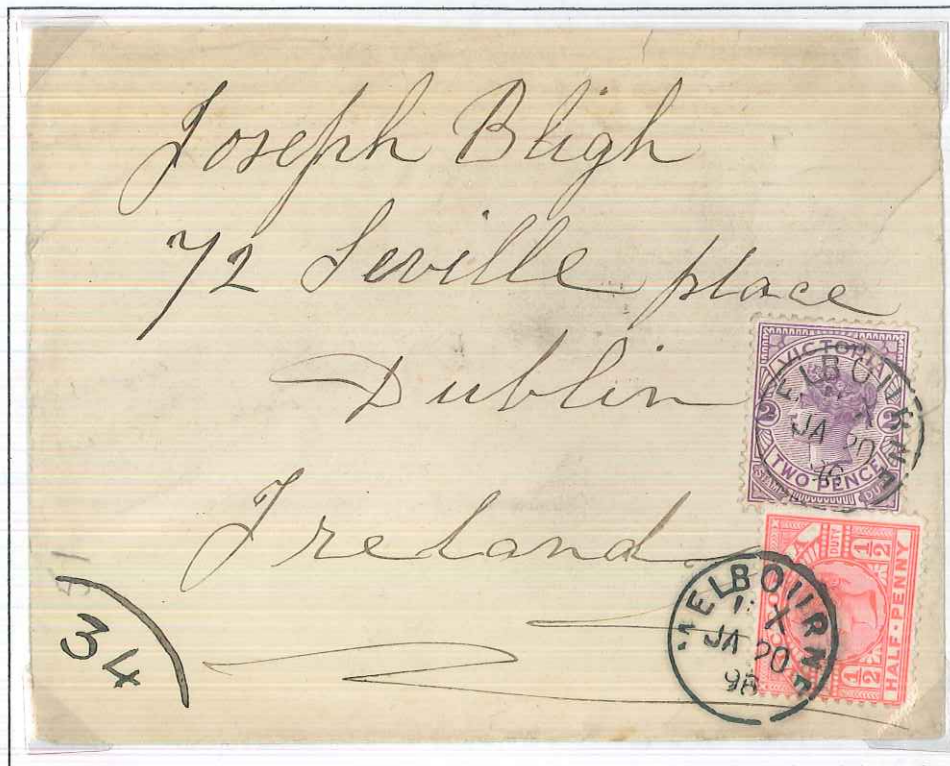 Joseph Bligh
72 Seville place
Dublin
Ireland
VICTORIA
2 2
TWO PENCE
STAMP DUTY
MELBOURNE
X
JA 20
DUTY
1/2 1/2
HALF-PENNY
MELBOURNE
X
JA 20
98
51
34